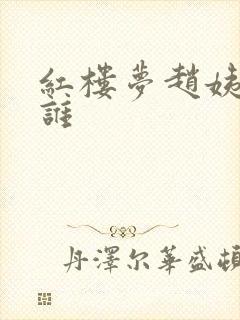 紅樓夢趙姨
誰
丹澤尔華盛頓